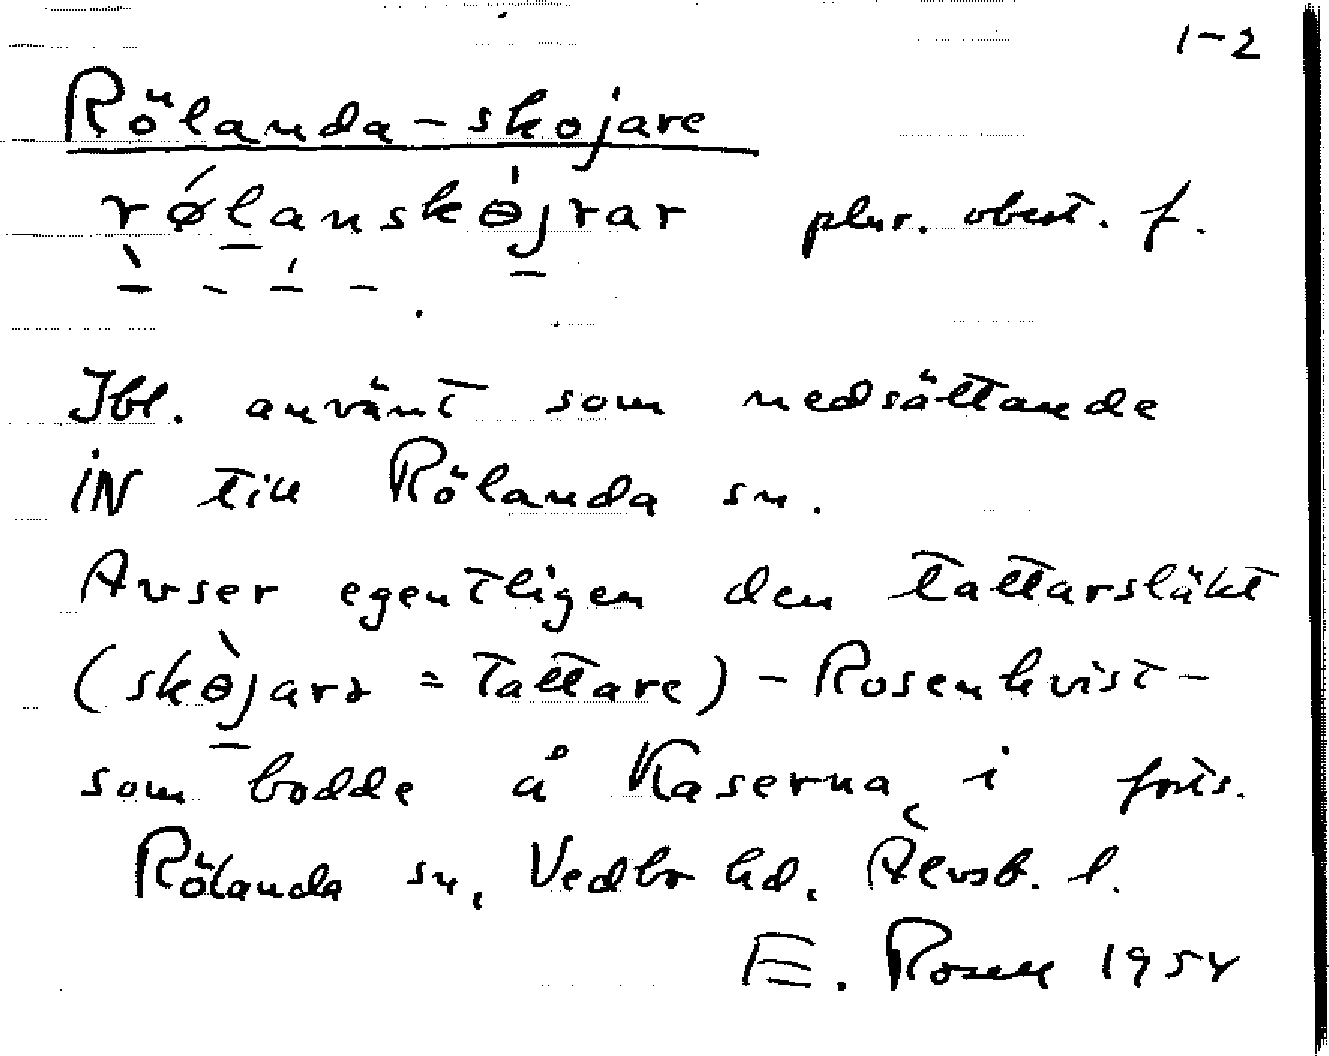 1-2
Rölanda-skojare
rølanskөjrar plur. obest. f.
Ibl. använt som nedsättande
IN till Rölanda sn.
Avser egentligen den tattarsläkt
(skөjarə = tattare) - Rosenkvist -
som bodde å Kaserna, i forts.
Rölanda sn, Vedbo hd. Älvsb. l.
E. Rosell 1954